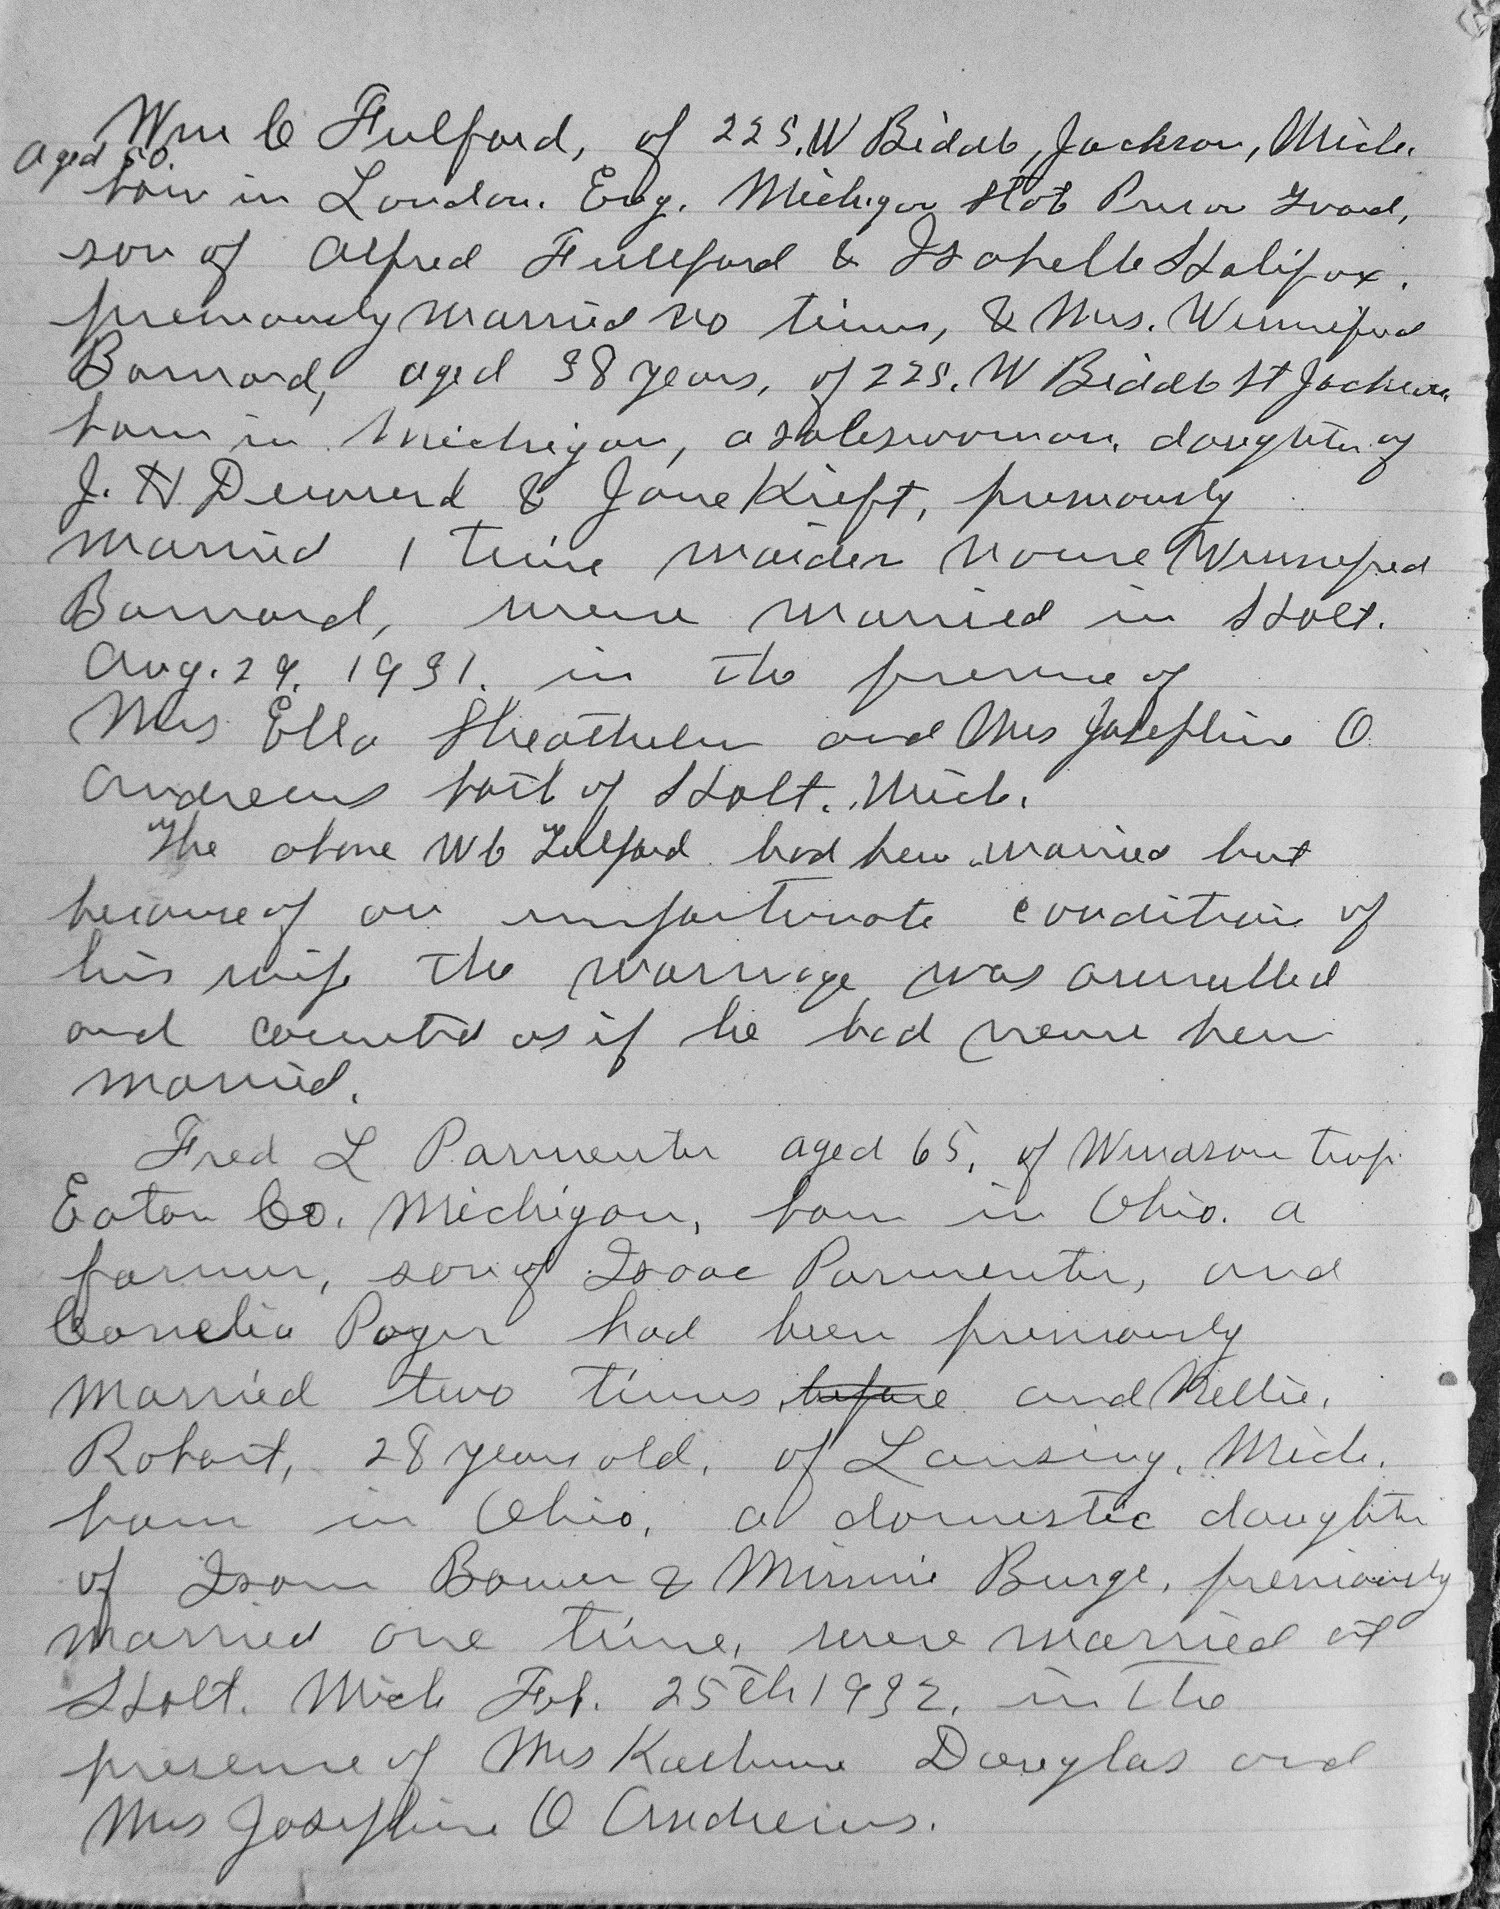 Wm C Fulford, of 225. W Biddle, Jackson, Mich.
Aged 50.
born in London. Eng. Michigan State Prison Guard,
son of Alfred Fullford & Isabelle Halifax.
previously married no times, & Mrs. Winnifred
Barnard, aged 38 years, of 225. W Biddle St Jackson.
born in Michigan, a saleswoman, daughter of
J. H & Jane Kieft, previously
married 1 time maiden name Winnifred
Barnard, were married in Holt.
Aug. 29. 1931. in the presence of
Mrs Ella and Mrs Josephine O
Andrews both of Holt. Mich.
The above W C Fulford had been married but
because of an unfortunate condition of
his wife the marriage was annulled
and counted as if he had never been
married.
Fred L Parmenter aged 65, of Windsor twp.
Eaton Co. Michigan, born in Ohio. a
farmer, son of Isaac Parmenter, and
Cornelia Poger had been previously
married two times before and Nellie.
Robart, 28 years old, of Lansing, Mich.
born in Ohio, a domestic daughter
of Isom Bower & Minnie Burge, previously
married one time, were married at
Holt. Mich Feb. 25th 1932, in the
presence of Mrs Katherine Douglas and
Mrs Josephine O Andrews.